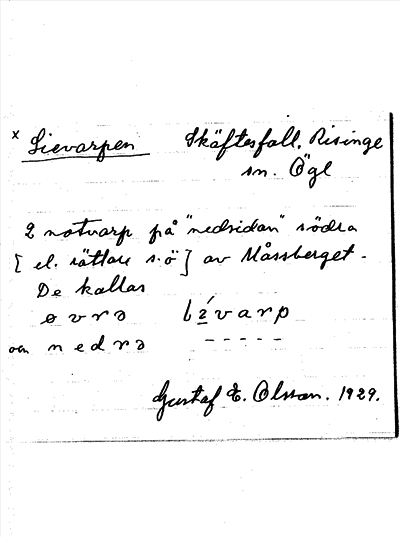 x Lievarpen Skäftesfall, Risinge
sn. Ögl
2 notvarp på "nedsidan" södra
[el. rättare s.ö] av Måssberget.
De kallas
øvrə lívarp
och nedrə - - - - -
Gustaf E. Olsson. 1929.